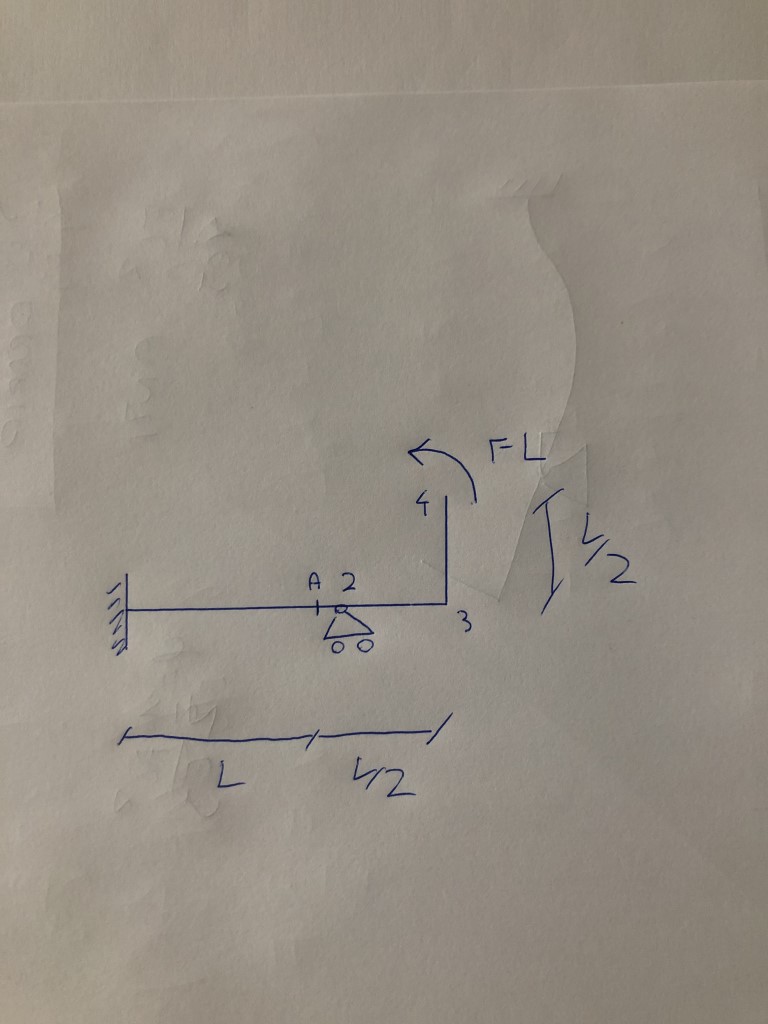 FL
4
L/2
A 2
3
L L/2